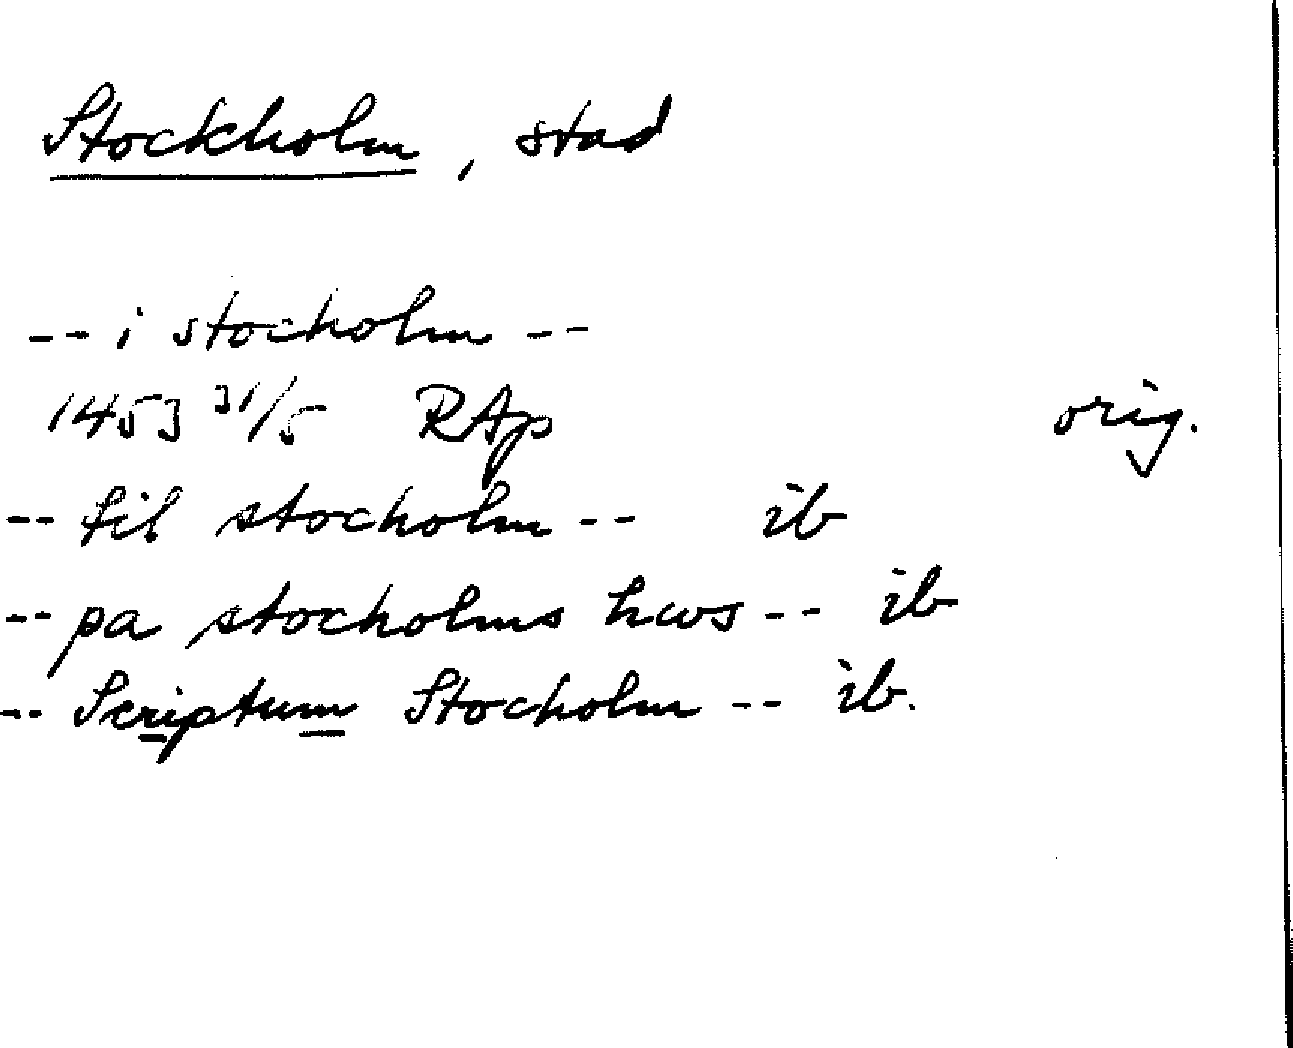 Stockholm, stad
-- i stocholm --
1453 31/5 RAp orig.
-- til stocholm -- ib
-- pa stocholms hws -- ib
-- Scriptum Stocholm -- ib.